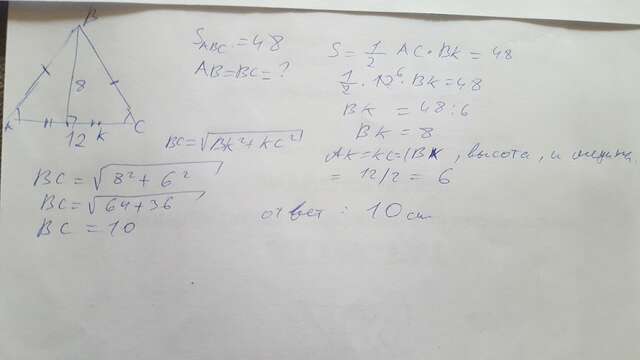 B
8
A
12
K
C
S ABC = 48
AB=BC= ?
BC=√BK²+KC²
BC=√8²+6²
BC=√64+36
BC=10
S=1/2 AC·BK=48
1/2·12⁶·BK=48
BK = 48:6
BK = 8
AK=KC=(BK, высота, и медиана
= 12/2 = 6
ответ : 10см